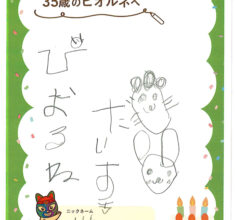 35歳のビオルネへ
びおるね
だいすき
ニックネーム